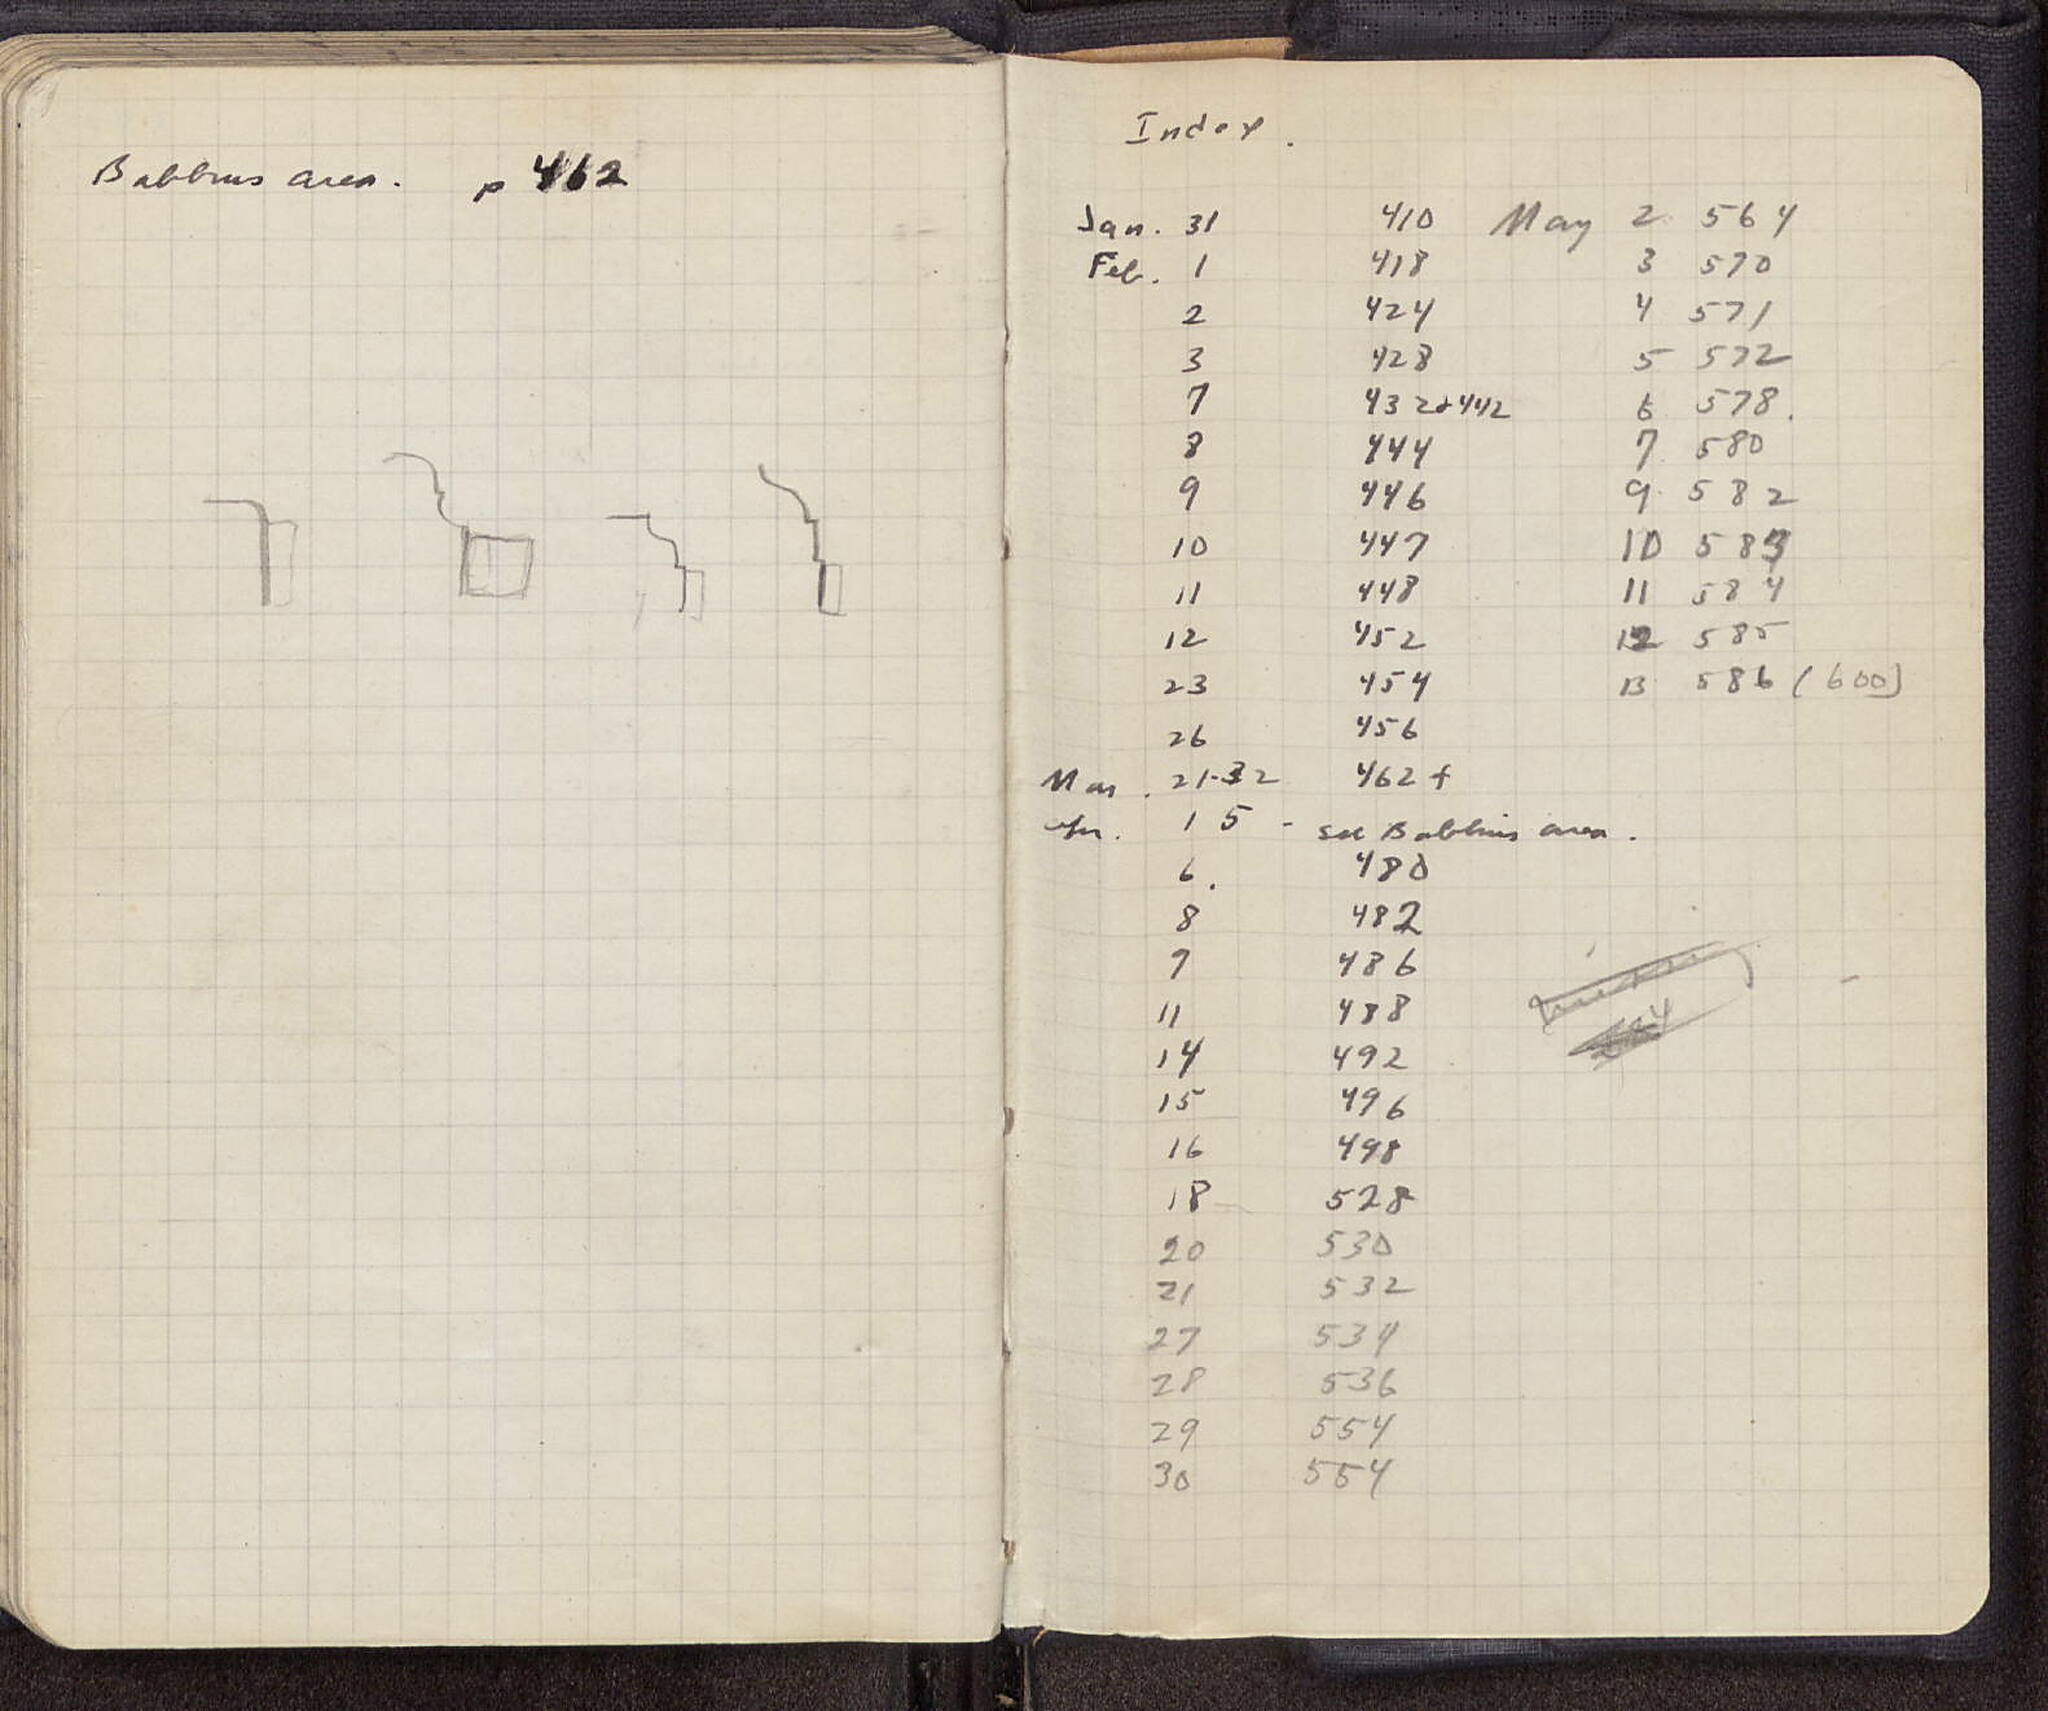 Babbius area. p 462
Index.
Jan. 31 410 May 2 564
Feb. 1 418 3 570
2 424 4 571
3 428 5 572
7 432+442 6 578.
8 444 7 580
9 446 9 582
10 447 10 583
11 448 11 584
12 452 12 585
23 454 13 586 (600)
26 456
Mar. 21-32 462 f
Apr. 1 5 - see Babbius area.
6. 480
8 482
9 486
11 488
14 492
15 496
16 498
18 528
20 530
21 532
27 534
28 536
29 554
30 554